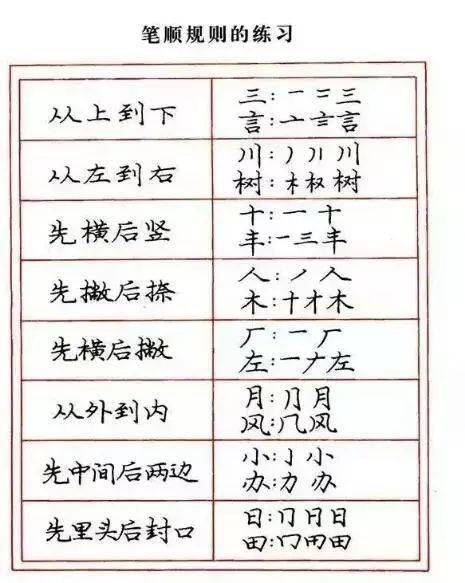 笔顺规则的练习
从上到下
三:一二三
言:亠言言
从左到右
川:丿川川
树:木权树
先横后竖
十:一十
丰:一三丰
先撇后捺
人:丿人
木:十才木
先横后撇
厂:一厂
左:一ナ左
从外到内
月:⺆月
风:几风
先中间后两边
小:亅小
办:力办
先里头后封口
日:冂日日
田:冂用田